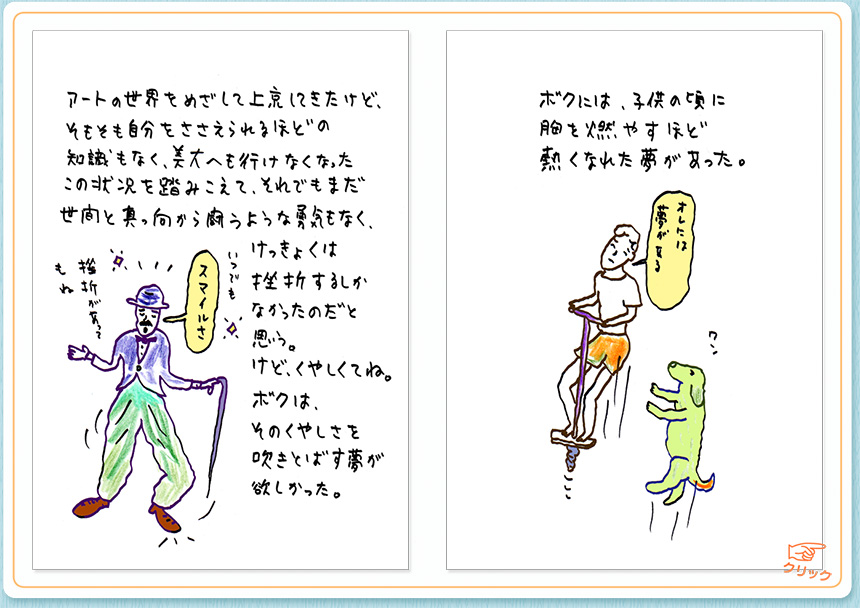 ボクには、子供の頃に
胸を燃やすほど
熱くなれた夢があった。
オレには
夢がある
ワン
アートの世界をめざして上京してきたけど、
そもそも自分をささえられるほどの
知識もなく、美大へも行けなくなった
この状況を踏みこえて、それでもまだ
世間と真っ向から闘うような勇気もなく、
けっきょくは
挫折するしか
なかったのだと
思う。
けど、くやしくてね。
ボクは、
そのくやしさを
吹きとばす夢が
欲しかった。
いつでも
スマイルさ
挫折があって
もね
クリック